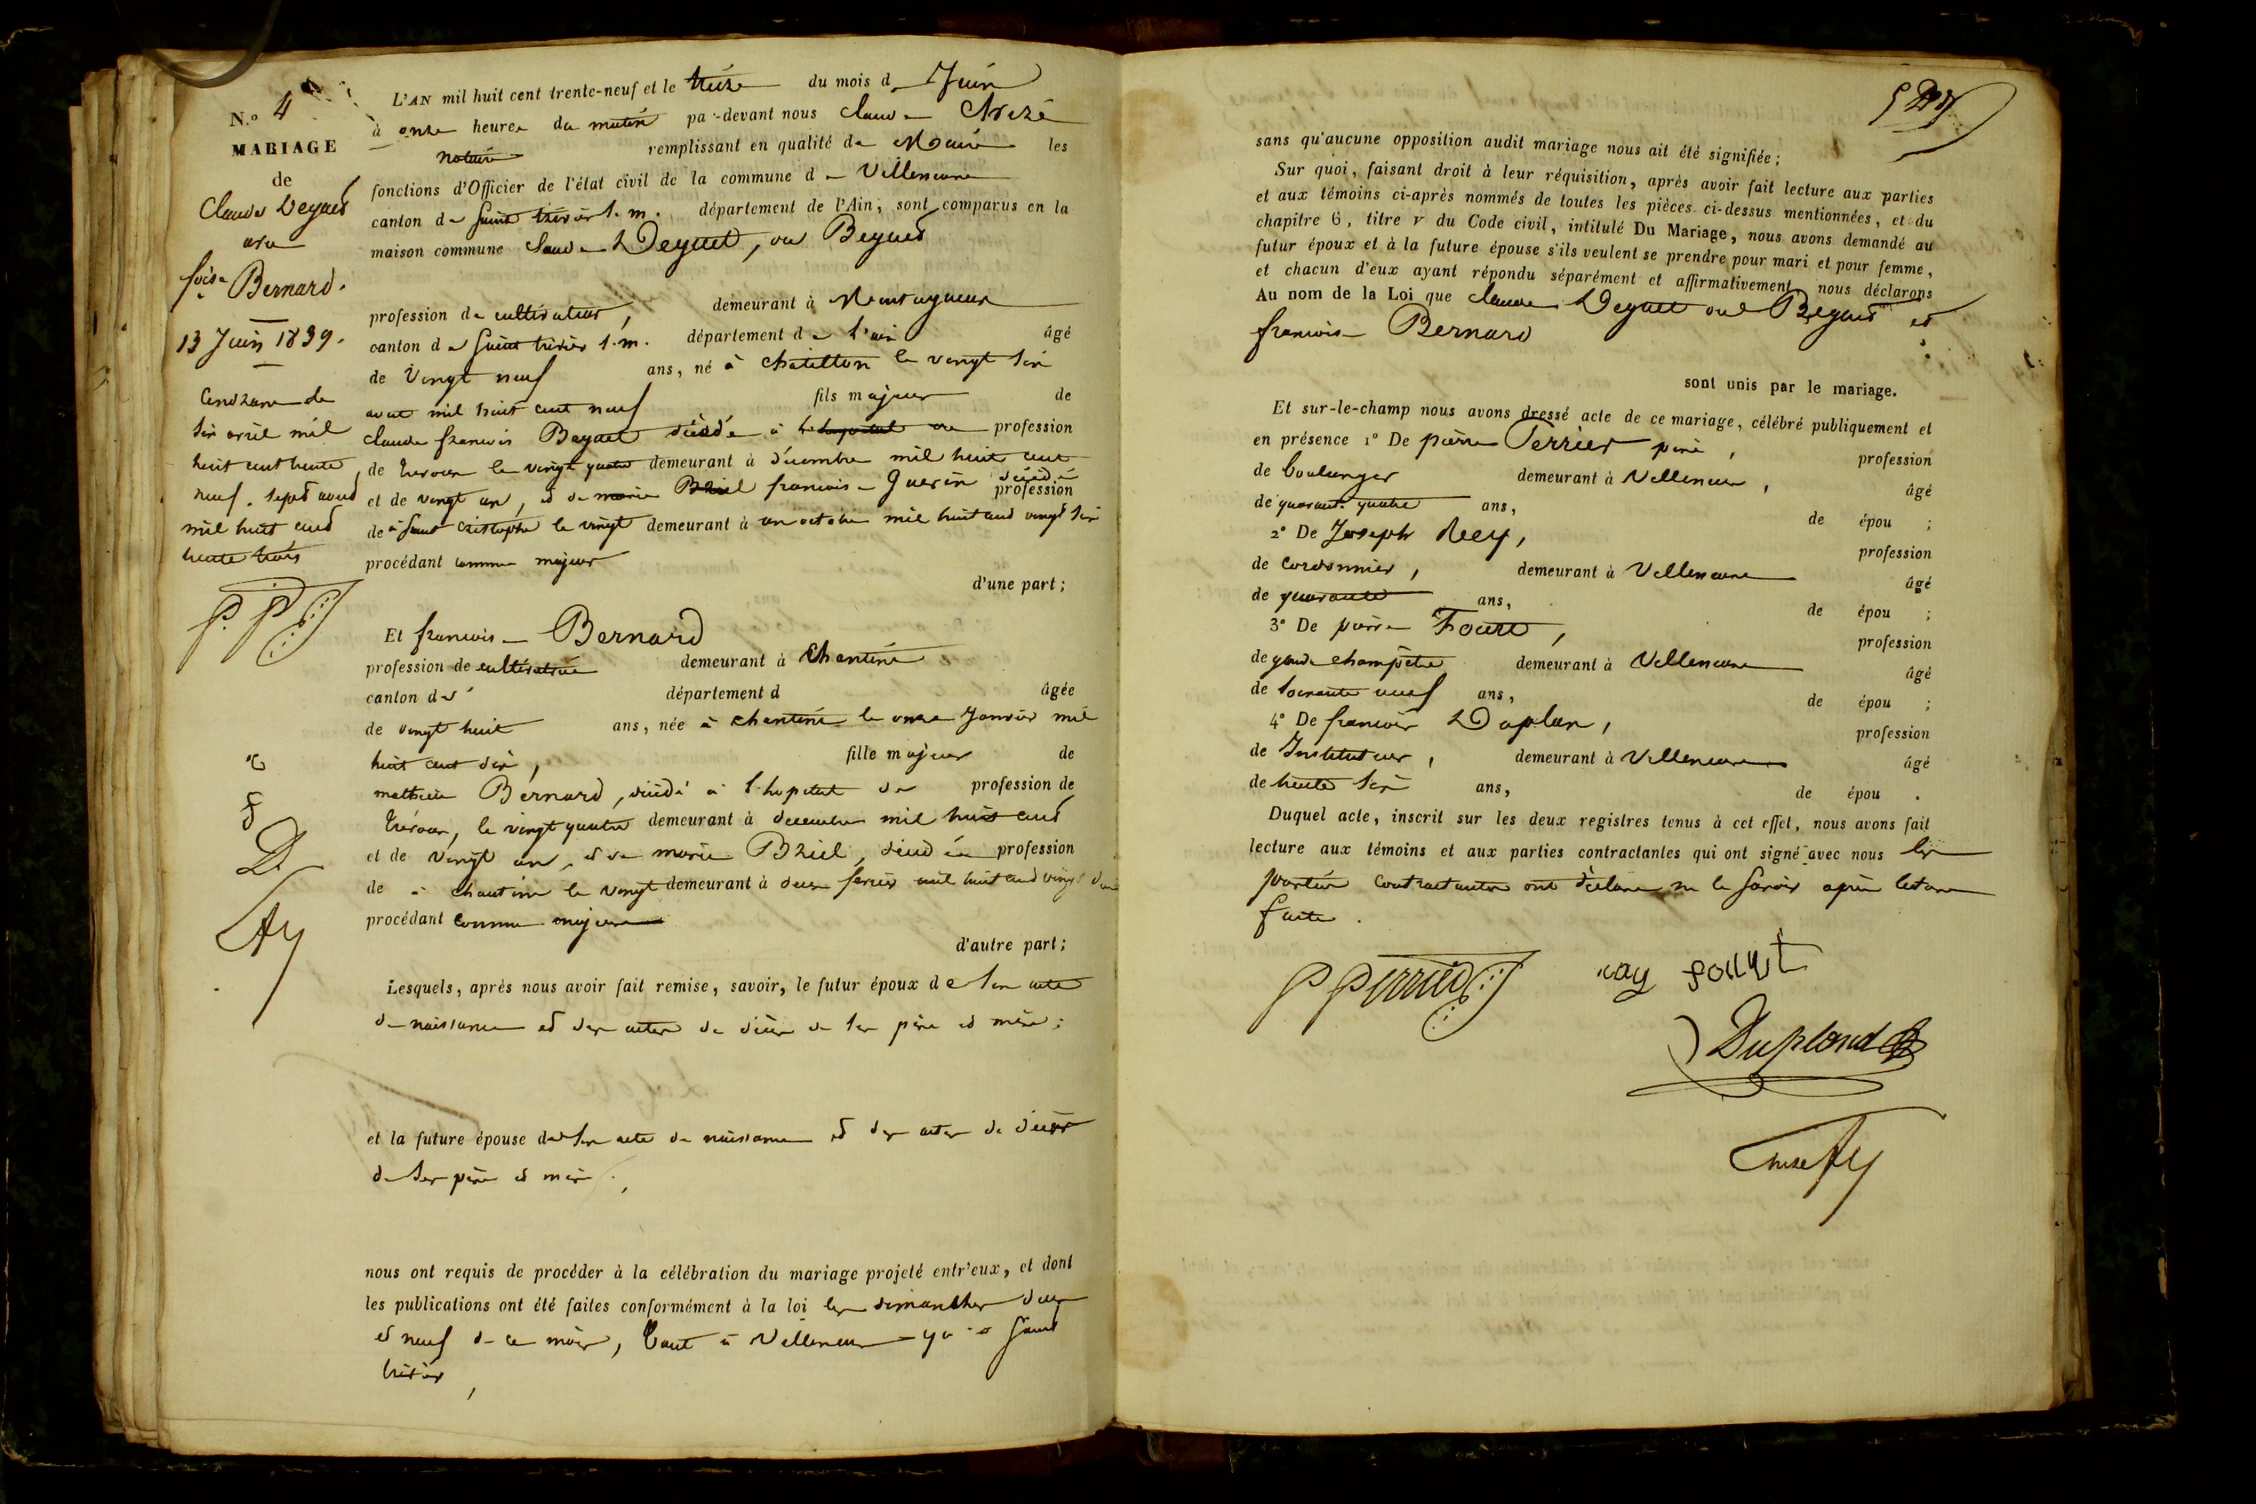 N.o 4
MARIAGE
de
Claude Deguet
avec
foise Bernard.
13 Juin 1839.
Cent
six avril mil
huit cent trente
neuf. sept aout
mil huit cent
trente trois
L'AN mil huit cent trente-neuf et le treize du mois de Juin
à onze heures du matin par-devant nous Claude
notaire remplissant en qualité de Maire les
fonctions d'Officier de l'état civil de la commune de Villeneuve
canton de Saint trivier s. m. département de l'Ain, sont comparus en la
maison commune Claude Deguet, ou Beguet
profession de cultivateur, demeurant à Montagneux
canton de Saint trivier s. m. département de l'ain âgé
de Vingt neuf ans, né à chatillon le vingt six
aout mil huit cent neuf fils majeur de
claude francois Beguet décédé à l'hopital de profession
de trevoux le vingt quatre demeurant à décembre mil huit cent
et de vingt un, et de marie Briel francoise Guerin décédée profession
de à Saint Cristophe le vingt demeurant à un octobre mil huit cent vingt six
procédant comme majeur
d'une part;
Et francoise Bernard
profession de cultivatrice demeurant à Chanteins
canton de département d âgée
de vingt huit ans, née à chanteins le onze Janvier mil
huit cent dix, fille majeur de
mathieu Bernard, décédé à l'hopital de profession de
Trévoux, le vingt quatre demeurant à decembre mil huit cent
et de vingt un, et de marie Briel, décédée profession
de à chanteins le vingt demeurant à deux fevrier mil huit cent vingt
procédant comme majeure
d'autre part;
Lesquels, après nous avoir fait remise, savoir, le futur époux de son acte
de naissance et des actes de décès de ses père et mère;
et la future épouse de son acte de naissance et des actes de décès
de ses père et mère,
nous ont requis de procéder à la célébration du mariage projeté entr'eux, et dont
les publications ont été faites conformément à la loi les dimanches deux
et neuf de ce mois, tant à Villeneuve qu'à Saint
trivier,
sans qu'aucune opposition audit mariage nous ait été signifiée;
Sur quoi, faisant droit à leur réquisition, après avoir fait lecture aux parties
et aux témoins ci-après nommés de toutes les pièces ci-dessus mentionnées, et du
chapitre 6, titre V du Code civil, intitulé Du Mariage, nous avons demandé au
futur époux et à la future épouse s'ils veulent se prendre pour mari et pour femme,
et chacun d'eux ayant répondu séparément et affirmativement, nous déclarons
Au nom de la Loi que claude Deguet ou Beguet et
francoise Bernard
sont unis par le mariage.
Et sur-le-champ nous avons dressé acte de ce mariage, célébré publiquement et
en présence 1° De pierre Perrier père, profession
de boulanger demeurant à Villeneuve, âgé
de quarante quatre ans, de épou ;
2° De Joseph Rey, profession
de cordonnier, demeurant à Villeneuve âgé
de quarante ans, de épou ;
3° De pierre Fouret, profession
de garde champêtre demeurant à Villeneuve âgé
de soixante neuf ans, de épou ;
4° De francois Duplan, profession
de Instituteur, demeurant à Villeneuve âgé
de trente six ans, de épou .
Duquel acte, inscrit sur les deux registres tenus à cet effet, nous avons fait
lecture aux témoins et aux parties contractantes qui ont signé avec nous les
parties contractantes ont déclaré ne le savoir après lecture
faite.
P Perrier
ray
Dupland